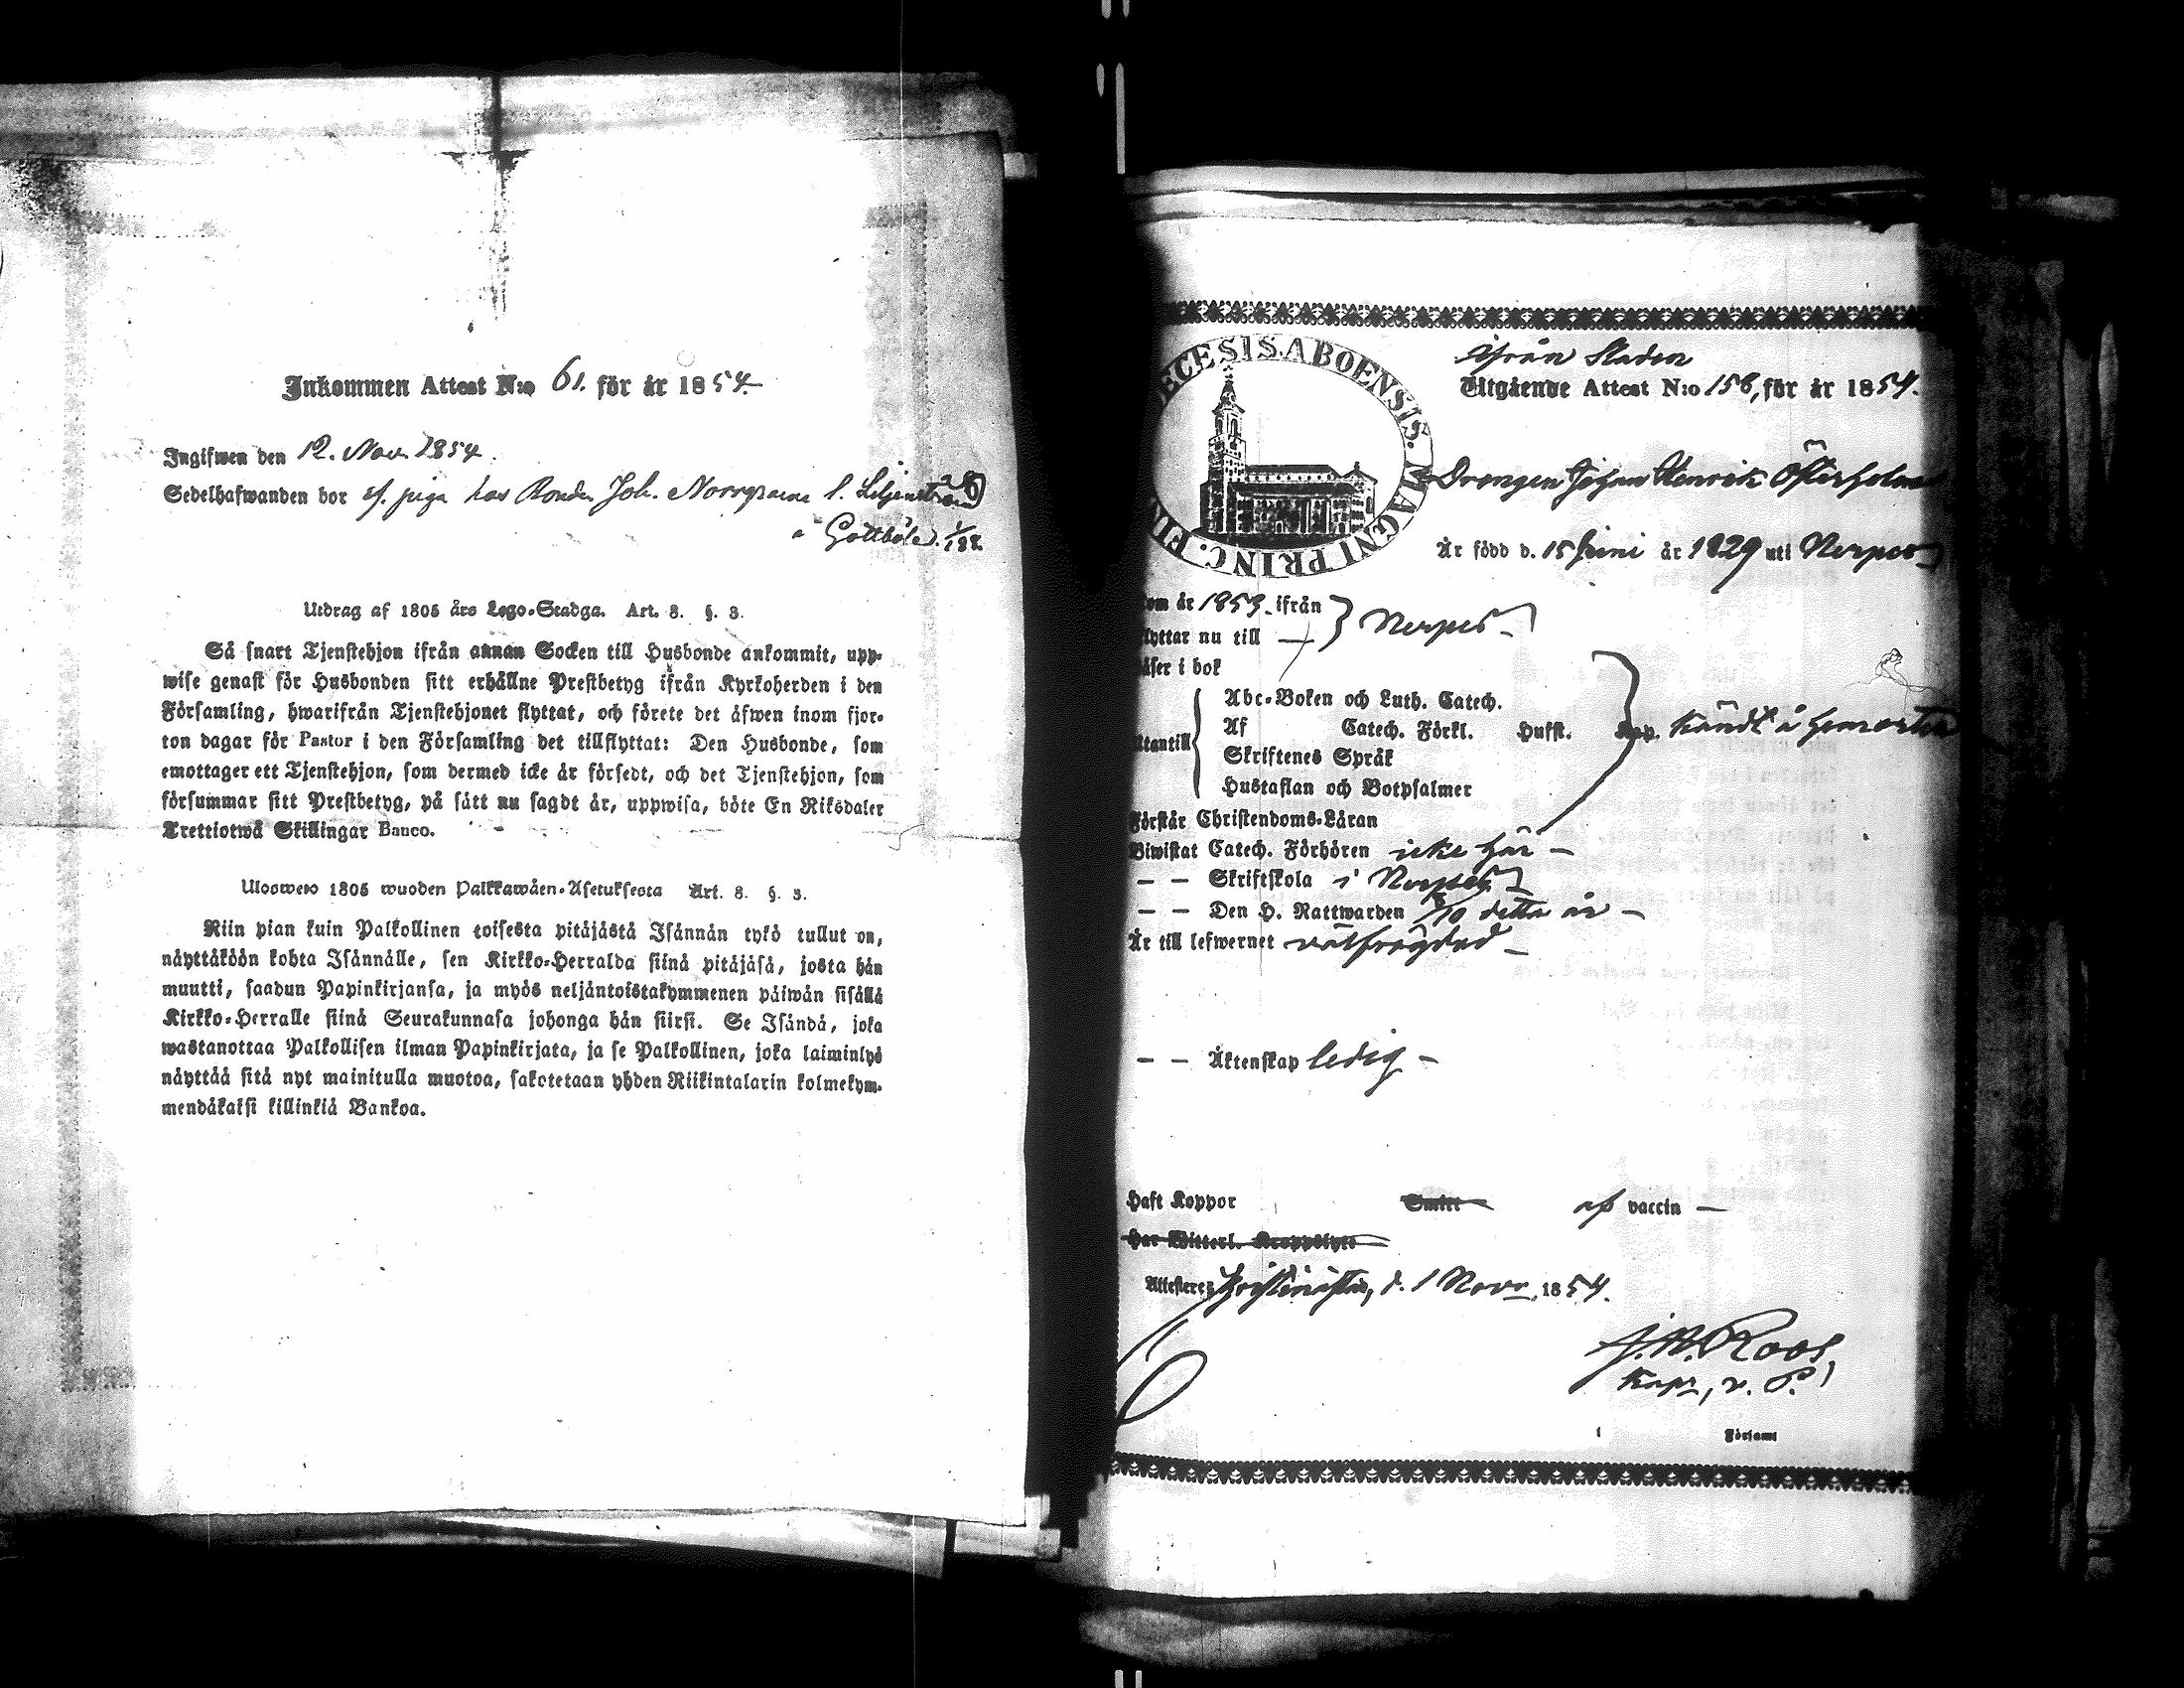 Inkommen Attest N:o 61. för år 1854.
Ingifwen den 12. Nov. 1854.
Sedelhafwanden bor s/. piga hos Bonden Joh. Norrgrann l. Liljenstrand
å Gottböle.
Utdrag af 1805 års Lego-Stadga. Art. 8. §. 3.
Så snart Tjenstehjon ifrån annan Socken till Husbonde ankommit, upp-
wise genast för Husbonden sitt erhållne Prestbetyg ifrån Kyrkoherden i den
Församling, hwarifrån Tjenstehjonet flyttat, och förete det äfwen inom fjor-
ton dagar för Pastor i den Församling det tillflyttat: Den Husbonde, som
emottager ett Tjenstehjon, som dermed icke är försedt, och det Tjenstehjon, som
försummar sitt Prestbetyg, på sätt nu sagdt är, uppwisa, böte En Riksdaler
Trettiotwå Skillingar Banco.
Ulosweto 1805 wuoden Palkkawäen-Asetuksesta Art. 8. §. 3.
Niin pian kuin Palkollinen toisesta pitäjästä Isännän tykö tullut on,
näyttäköön kohta Isännälle, sen Kirkko-Herralda siinä pitäjäsä, josta hän
muutti, saadun Papinkirjansa, ja myös neljäntoistakymmenen päiwän sisällä
Kirkko-Herralle siinä Seurakunnasa johonga hän siirsi. Se Isändä, joka
wastanottaa Palkollisen ilman Papinkirjata, ja se Palkollinen, joka laiminlyö
näyttää sitä nyt mainitulla muotoa, sakotetaan yhden Riikintalarin kolmekym-
mendäkaksi killinkiä Bankoa.
ECESIS ABOENSIS. MAGNI PRINC. FIN
ifrån Staden
Utgående Attest N:o 158, för år 1854.
Drengen Johan Henrik Österholm
Är född d. 15 Juni år 1829 uti Nerpes
om år 1853. ifrån } Nerpes
lyttar nu till
äser i bok
Abc-Boken och Luth. Catech.
utantill Af Catech. Förkl. Husst. Spp. Kändt å hemorten
Skriftenes Språk
Hustaflan och Botpsalmer
Förstår Christendoms-Läran
Biwistat Catech. Förhören icke här –
– – Skriftskola i Nerpes
– – Den H. Nattwarden /10 detta år –
Är till lefwernet välfrägdad –
– – Äktenskap ledig –
Haft Koppor Smitt af vaccin –
Har Witterl. Kroppslyte
Attesterez Kristinestad, d. 1 Novr 1854.
J. W. Roos
Kapn, v. P.
i Församl